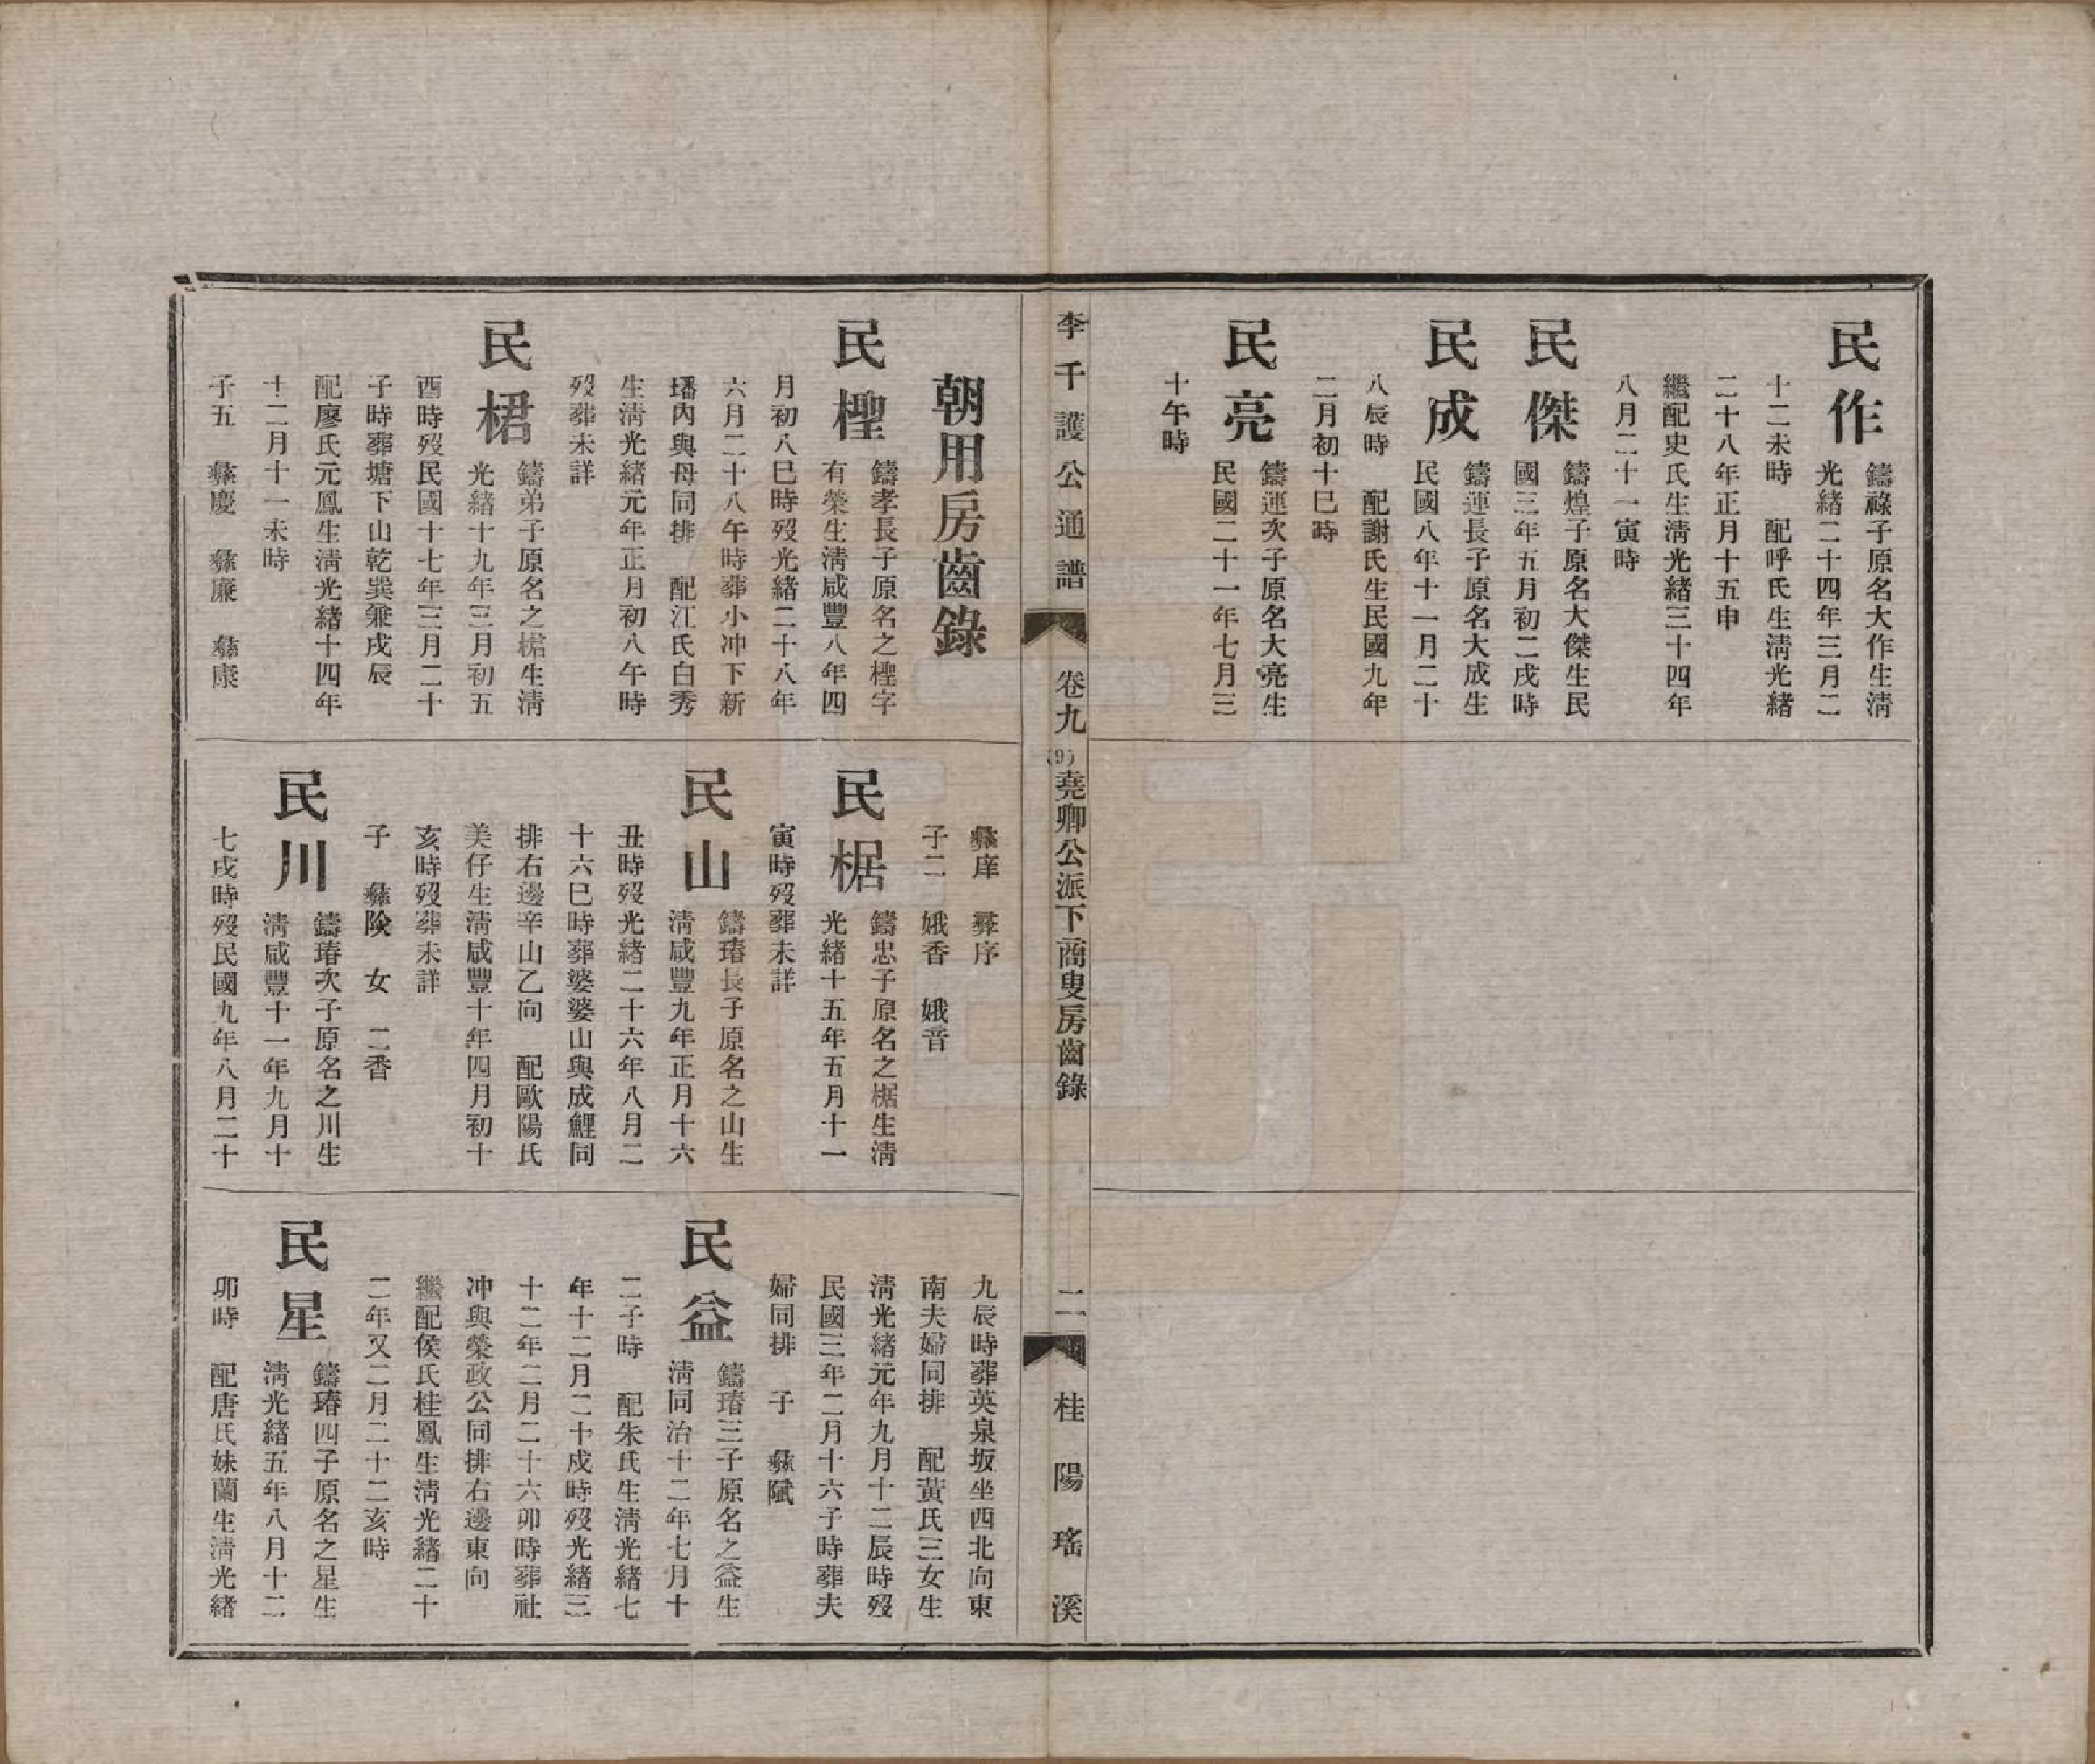 民作
鑄祿子原名大作生清
光緒二十四年三月二
十二未時　配呼氏生清光緒
二十八年正月十五申
繼配史氏生清光緒三十四年
八月二十一寅時
民傑
鑄煌子原名大傑生民
國三年五月初二戌時
民成
鑄連長子原名大成生
民國八年十一月二十
八辰時　配謝氏生民國九年
二月初十巳時
民亮
鑄連次子原名大亮生
民國二十一年七月三
十午時
李千護公通譜
卷九
(9)
堯卿公派下商叟房齒錄
二
桂陽瑤溪
朝用房齒錄
民檉
鑄孝長子原名之檉字
有榮生清咸豐八年四
月初八巳時歿光緒二十八年
六月二十八午時葬小冲下新
墦內與母同排　配江氏白秀
生清光緒元年正月初八午時
歿葬未詳
民桾
鑄弟子原名之桾生清
光緒十九年三月初五
酉時歿民國十七年三月二十
子時葬塘下山乾巽兼戌辰
配廖氏元鳳生清光緒十四年
十二月十一未時
子五　彝慶　彝廉　彝康
彝庠　彝序
子二　娥香　娥音
民椐
鑄忠子原名之椐生清
光緒十五年五月十一
寅時歿葬未詳
民山
鑄瑃長子原名之山生
清咸豐九年正月十六
丑時歿光緒二十六年八月二
十六巳時葬婆婆山與成鯉同
排右邊辛山乙向　配歐陽氏
美仔生清咸豐十年四月初十
亥時歿葬未詳
子　彝險　女　二香
民川
鑄瑃次子原名之川生
清咸豐十一年九月十
七戌時歿民國九年八月二十
九辰時葬英泉坂坐西北向東
南夫婦同排　配黃氏三女生
清光緒元年九月十二辰時歿
民國三年二月十六子時葬夫
婦同排　子　彝賦
民益
鑄瑃三子原名之益生
清同治十二年七月十
二子時　配朱氏生清光緒七
年十二月二十戌時歿光緒三
十二年二月二十六卯時葬社
冲與榮政公同排右邊東向
繼配侯氏桂鳳生清光緒二十
二年又二月二十二亥時
民星
鑄瑃四子原名之星生
清光緒五年八月十二
卯時　配唐氏妹蘭生清光緒